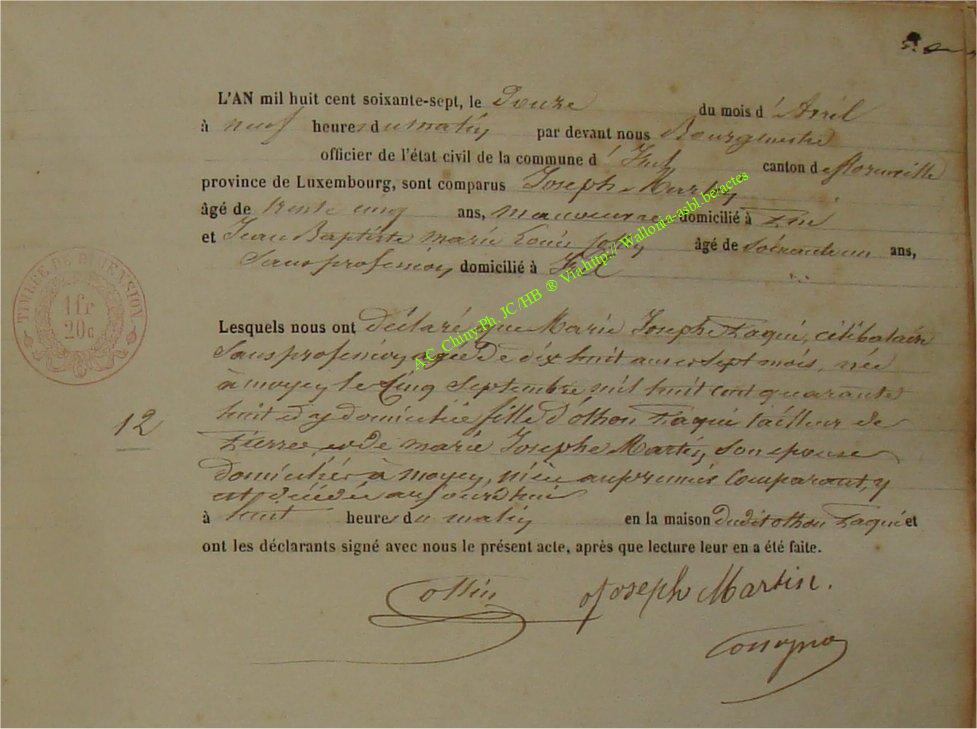 L'AN mil huit cent soixante-sept, le Douze du mois d'Avril
à neuf heures du matin par devant nous Bourgmestre
officier de l'état civil de la commune d' canton de florenville
province de Luxembourg, sont comparus Joseph Martin
âgé de trente cinq ans, manoeuvre domicilié à
et Jean Baptiste marie Louis âgé de Soixante un ans,
Sans profession domicilié à
Lesquels nous ont Déclaré que Marie Josephe Laqui, célibataire
Sans profession agée de dix huit ans et sept mois, née
à moyen le Cinq Septembre mil huit cent quarante
huit et y domiciliée fille d'othon Laqui tailleur de
Pierres et de marie Josephe Martin, Son épouse
domiciliés à moyen, nièce au premier Comparant, y
est décédée aujourdhui
à huit heures du matin en la maison dudit othon Laqui et
ont les déclarants signé avec nous le présent acte, après que lecture leur en a été faite.
Collin Joseph Martin.
12
TIMBRE DE DIMENSION
1 fr
20c
A.C. Chiny-Ph. JC/HB ® Via http://Wallonia-asbl.be/actes